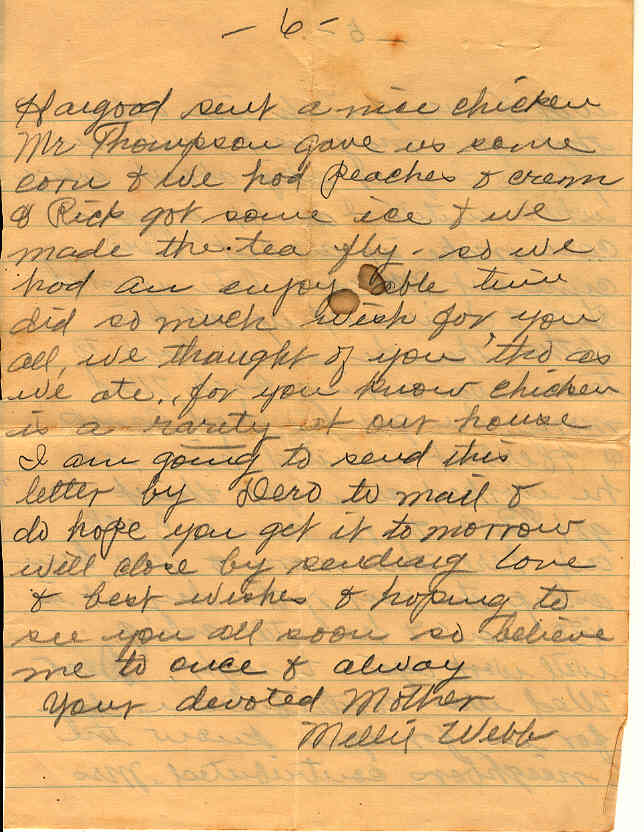 - 6 -
Hargood sent a nice chicken
Mr Thompson gave us some
corn & we had peaches & cream
& Rick got some ice & we
made the tea fly - so we
had an enjoyable time
did so much wish for you
all, we thought of you 'tho as
we ate, for you know chicken
is a rarity at our house
I am going to send this
letter by Dero to mail &
do hope you get it to morrow
will close by sending love
& best wishes & hoping to
see you all soon so believe
me to once & alway
Your devoted Mother
Mellie Webb